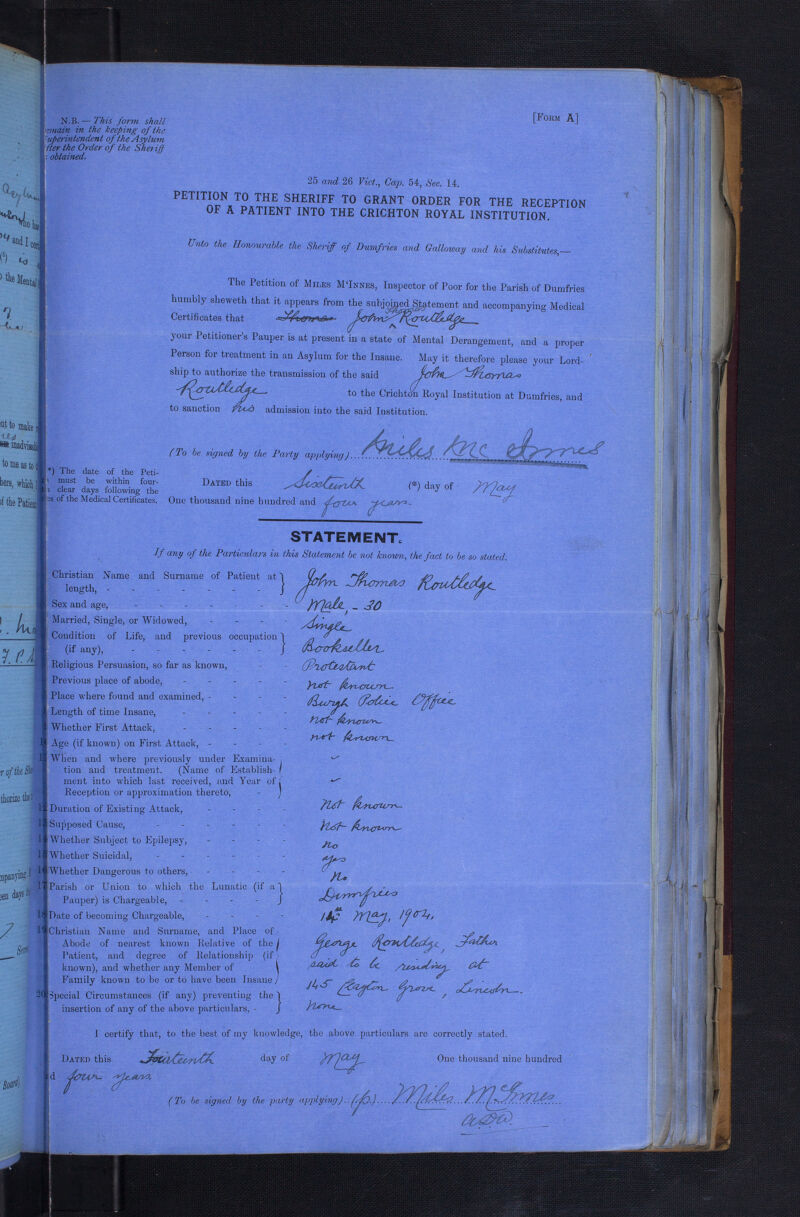 N.B. — This form shall
remain in the keeping of the
Superintendent of the Asylum
after the Order of the Sheriff
obtained.
[FORM A]
25 and 26 Vict., Cap. 54, Sec. 14.
PETITION TO THE SHERIFF TO GRANT ORDER FOR THE RECEPTION
OF A PATIENT INTO THE CRICHTON ROYAL INSTITUTION.
Unto the Honourable the Sheriff of Dumfries and Galloway and his Substitutes,—
The Petition of MILES M'INNES, Inspector of Poor for the Parish of Dumfries
humbly sheweth that it appears from the subjoined Statement and accompanying Medical
Certificates that Thomas John Thomas Routledge
your Petitioner's Pauper is at present in a state of Mental Derangement, and a proper
Person for treatment in an Asylum for the Insane. May it therefore please your Lord-
ship to authorize the transmission of the said John Thomas
Routledge to the Crichton Royal Institution at Dumfries, and
to sanction his admission into the said Institution.
(To be signed by the Party applying) Miles McInnes
(*) The date of the Peti-
must be within four-
clear days following the
of the Medical Certificates.
DATED this Sixteenth (*) day of May
One thousand nine hundred and four years.
STATEMENT.
If any of the Particulars in this Statement be not known, the fact to be so stated.
Christian Name and Surname of Patient at
length, - John Thomas Routledge
Sex and age, - Male, - 30
Married, Single, or Widowed, - Single
Condition of Life, and previous occupation
(if any), - Bookseller
Religious Persuasion, so far as known, - Protestant
Previous place of abode, - not known
Place where found and examined, - Burgh Police Office
Length of time Insane, - not known
Whether First Attack, - not known
Age (if known) on First Attack, -
When and where previously under Examina-
tion and treatment. (Name of Establish-
ment into which last received, and Year of
Reception or approximation thereto,
12 Duration of Existing Attack, - Not known
13 Supposed Cause, - Not known
14 Whether Subject to Epilepsy, - No
15 Whether Suicidal, - yes
16 Whether Dangerous to others, - No
17 Parish or Union to which the Lunatic (if a
Pauper) is Chargeable, - Dumfries
18 Date of becoming Chargeable, - 14th May, 1904,
19 Christian Name and Surname, and Place of
Abode of nearest known Relative of the
Patient, and degree of Relationship (if
known), and whether any Member of
Family known to be or to have been Insane
George Routledge, Father
said to be residing at
145 Grove, Lincoln.
20 Special Circumstances (if any) preventing the
insertion of any of the above particulars, - None
I certify that, to the best of my knowledge, the above particulars are correctly stated.
DATED this Fourteenth day of May One thousand nine hundred
four years
(To be signed by the party applying) Miles McInnes